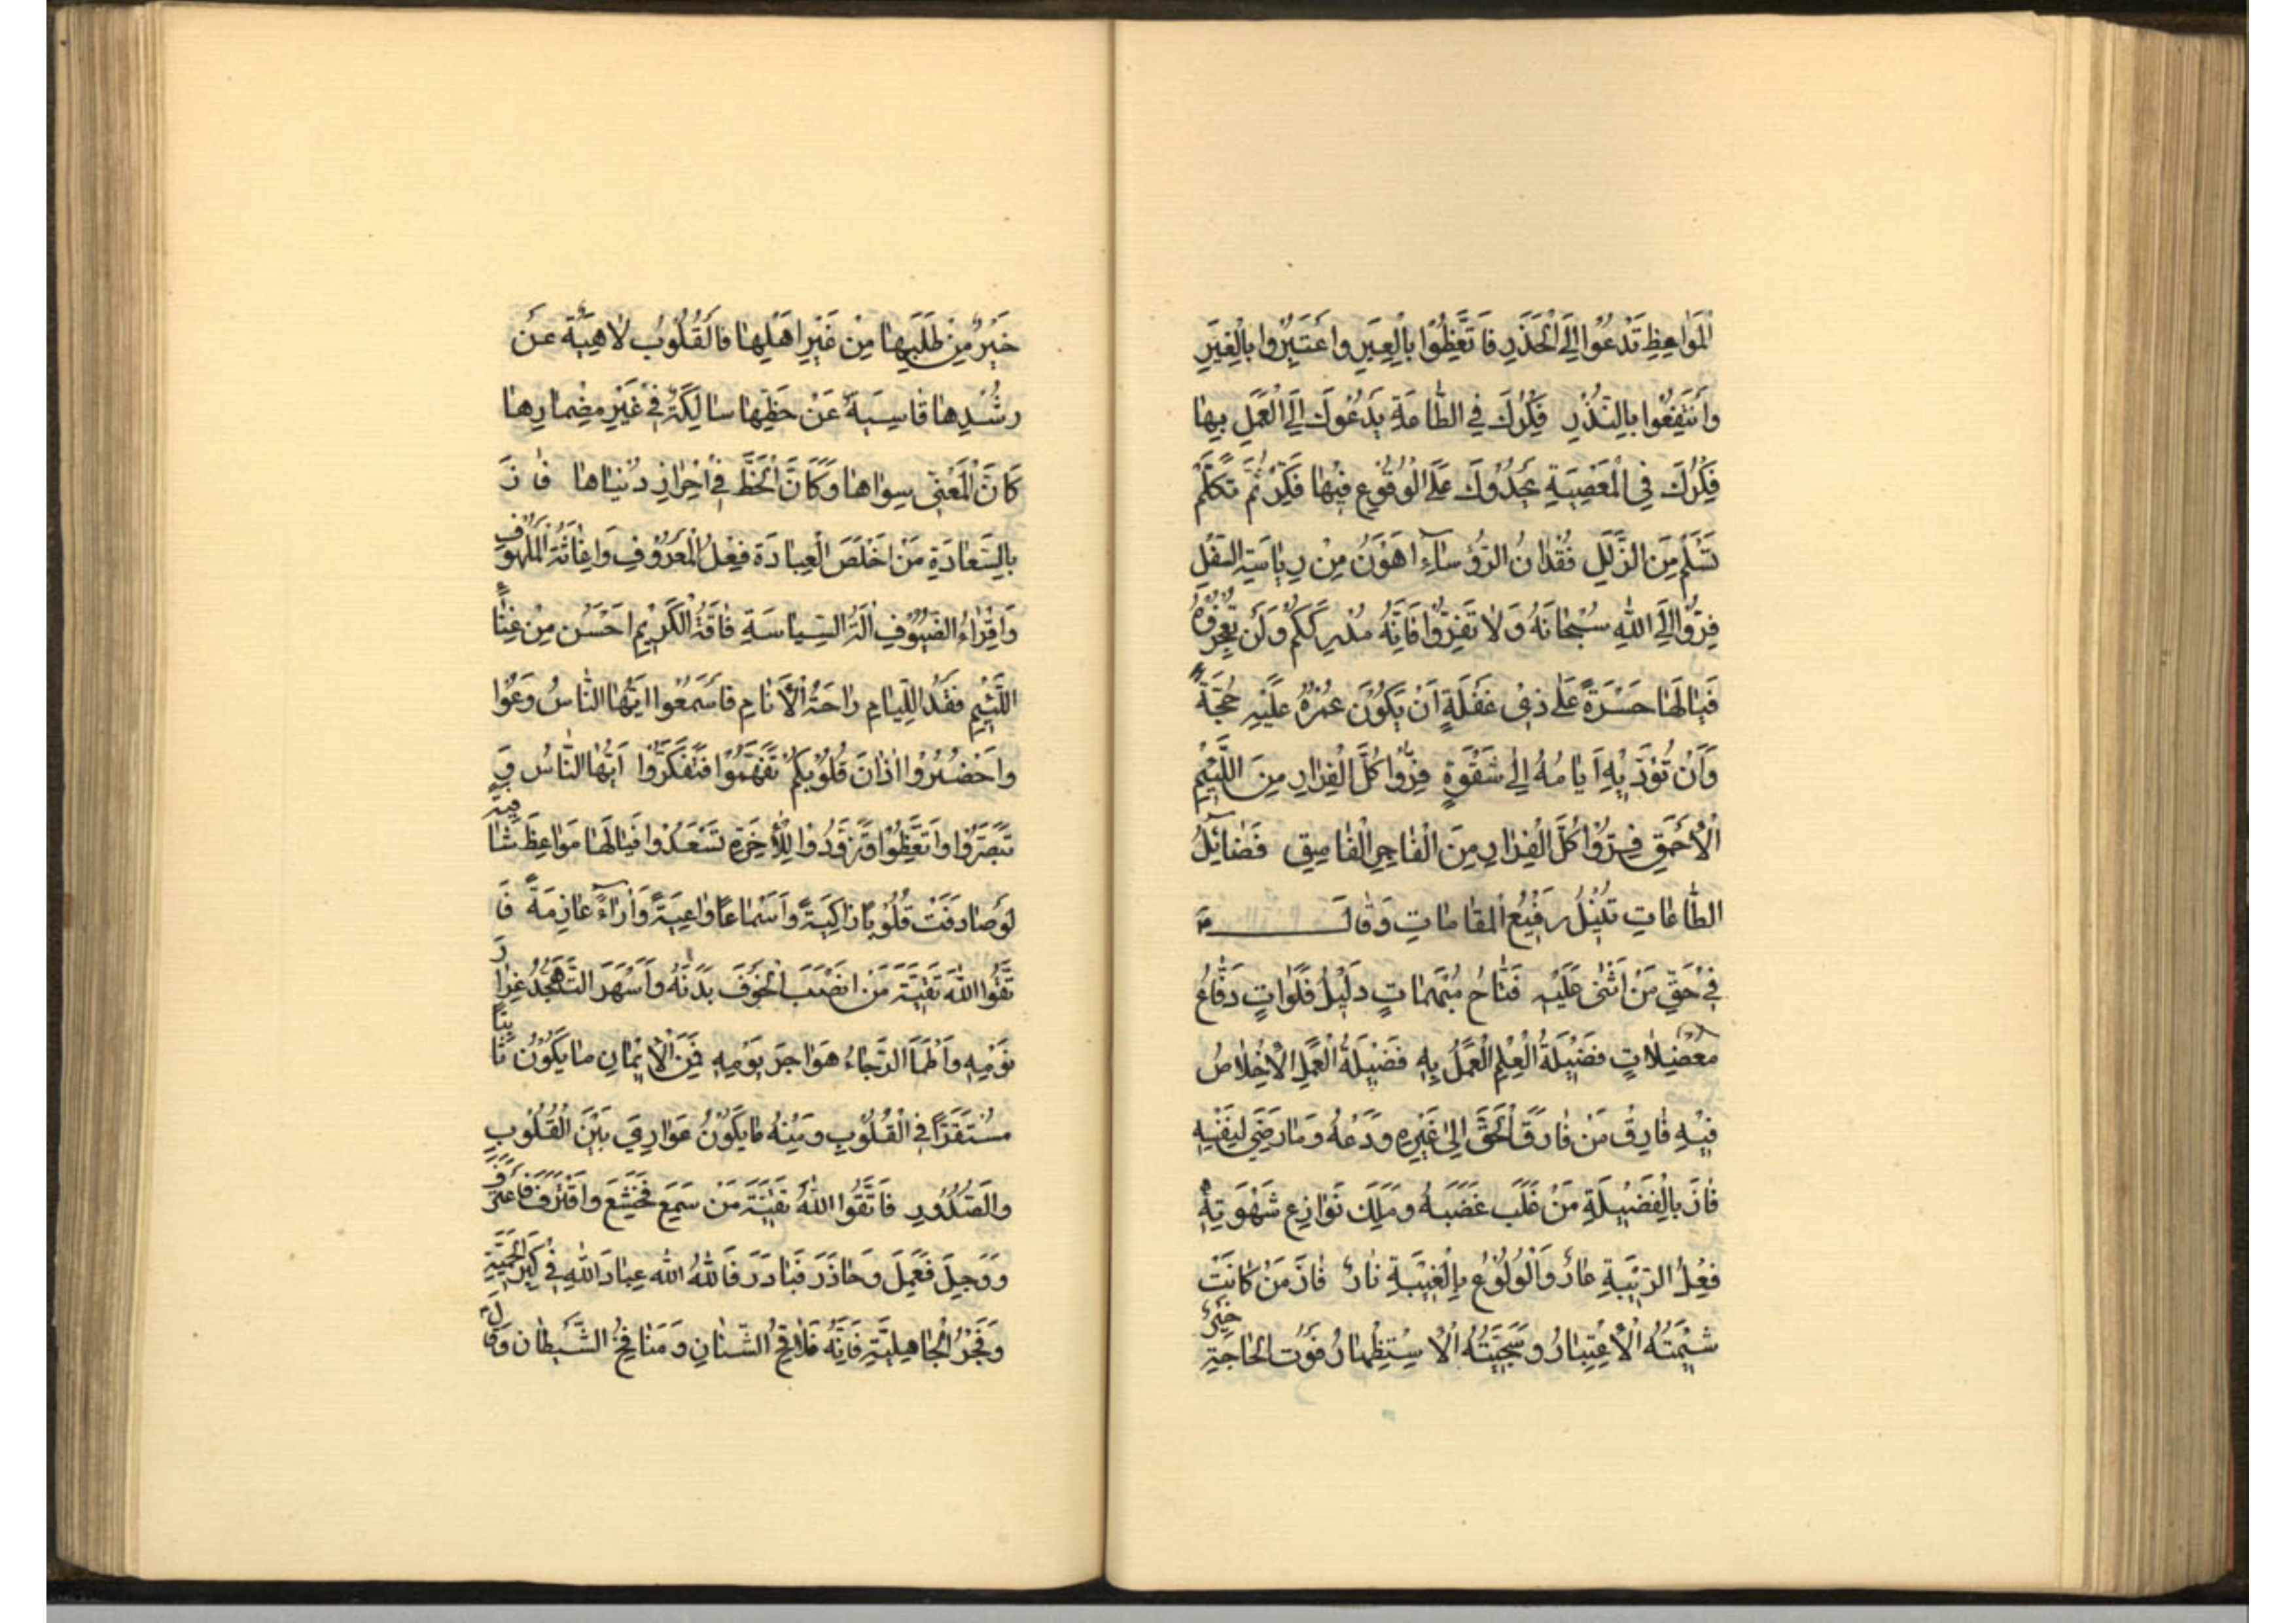 الْمَوَاعِظِ تَدْعُوا اِلَى الْحَذَرِ فَاتَّعِظُوا بِالْعِبَرِ وَاعْتَبِرُوا بِالْغِيَرِ
وَانْتَفِعُوا بِالنُّذُرِ فِكْرُكَ فِي الطَّاعَةِ يَدْعُوكَ اِلَى الْعَمَلِ بِهَا
فِكْرُكَ فِي الْمَعْصِيَةِ يَحْدُوكَ عَلَى الْوُقُوعِ فِيْهَا فَكِّرْ ثُمَّ تَكَلَّمْ
تَسْلَمْ مِنَ الزَّلَلِ فُقْدَانُ الرُّؤَسَاءِ اَهْوَنُ مِنْ رِيَاسَةِ السَّفَلِ
فِرُّوا اِلَى اللّٰهِ سُبْحَانَهُ وَلَا تَفِرُّوا فَاِنَّهُ مُدْرِكُكُمْ وَلَنْ تُعْجِزُوهُ
فَيَا لَهَا حَسْرَةً عَلٰى ذِيْ غَفْلَةٍ اَنْ يَكُوْنَ عُمْرُهُ عَلَيْهِ حُجَّةً
وَاَنْ تُؤَدِّيَهُ اَيَّامُهُ اِلٰى شَقْوَةٍ فِرُّوا كُلَّ الْفِرَارِ مِنَ اللَّئِيْمِ
الْاَحْمَقِ فِرُّوْا كُلَّ الْفِرَارِ مِنَ الْفَاجِرِ الْفَاسِقِ فَضَائِلُ
الطَّاعَاتِ تُنِيْلُ رَفِيْعَ الْمَقَامَاتِ وَقَالَ
فِيْ حَقِّ مَنْ اَثْنٰى عَلَيْهِ فَتَّاحُ مُبْهَمَاتٍ دَلِيْلُ فَلَوَاتٍ دَفَّاعُ
مُعْضِلَاتٍ فَضِيْلَةُ الْعِلْمِ الْعَمَلُ بِهِ فَضِيْلَةُ الْعَمَلِ الْاِخْلَاصُ
فِيْهِ فَارِقْ مَنْ فَارَقَ الْحَقَّ اِلٰى غَيْرِهِ وَدَعْهُ وَمَا رَضِيَ لِنَفْسِهِ
فَازَ بِالْفَضِيْلَةِ مَنْ غَلَبَ غَضَبَهُ وَمَلَكَ نَوَازِعَ شَهْوَتِهِ
فِعْلُ الرِّيْبَةِ عَارٌ وَالْوُلُوْعُ بِالْغِيْبَةِ نَارٌ فَازَ مَنْ كَانَتْ
شِيْمَتُهُ الْاِعْتِبَارُ وَسَجِيَّتُهُ الْاِسْتِظْهَارُ فَوْتُ الْحَاجَةِ خَيْرٌ
خَيْرٌ مِنْ طَلَبِهَا مِنْ غَيْرِ اَهْلِهَا فَالْقُلُوْبُ لَاهِيَةٌ عَنْ
رُشْدِهَا قَاسِيَةٌ عَنْ حَظِّهَا سَالِكَةٌ فِيْ غَيْرِ مِضْمَارِهَا
كَاَنَّ الْمَعْنِيَّ سِوَاهَا وَكَاَنَّ الْحَظَّ فِيْ اِحْرَازِ دُنْيَاهَا فَازَ
بِالسَّعَادَةِ مَنْ اَخْلَصَ الْعِبَادَةَ فِعْلُ الْمَعْرُوْفِ وَاِغَاثَةُ الْمَلْهُوْفِ
وَاِقْرَاءُ الضُّيُوْفِ اٰلَةُ السِّيَاسَةِ فَاقَةُ الْكَرِيْمِ اَحْسَنُ مِنْ غِنَاءِ
اللَّئِيْمِ فَقْدُ اللِّئَامِ رَاحَةُ الْاَنَامِ فَاسْمَعُوا اَيُّهَا النَّاسُ وَعُوْا
وَاَحْضِرُوا اٰذَانَ قُلُوْبِكُمْ تَفَهَّمُوْا فَتَفَكَّرُوْا اَيُّهَا النَّاسُ وَ
تَبَصَّرُوْا وَاتَّعِظُوْا وَتَزَوَّدُوْا لِلْاٰخِرَةِ تَسْعَدُوْا فَيَالَهَا مَوَاعِظَ شَافِيَةً
لَوْ صَادَفَتْ قُلُوْبًا زَاكِيَةً وَاَسْمَاعًا وَاعِيَةً وَاٰرَاءً عَازِمَةً فَا
تَّقُوا اللّٰهَ تَقِيَّةَ مَنْ اَنْصَبَ الْخَوْفُ بَدَنَهُ وَاَسْهَرَ التَّهَجُّدُ غِرَارَ
نَوْمِهِ وَاَظْمَاَ الرَّجَاءُ هَوَاجِرَ يَوْمِهِ فَمِنَ الْاِيْمَانِ مَا يَكُوْنُ ثَابِتًا
مُسْتَقَرًّا فِي الْقُلُوْبِ وَمِنْهُ مَا يَكُوْنُ عَوَارِيَ بَيْنَ الْقُلُوْبِ
وَالصُّدُوْرِ فَاتَّقُوا اللّٰهَ تَقِيَّةَ مَنْ سَمِعَ فَخَشَعَ وَاقْتَرَفَ فَاعْتَرَفَ
وَوَجِلَ فَعَمِلَ وَحَاذَرَ فَبَادَرَ فَاللّٰهَ اللّٰهَ عِبَادَ اللّٰهِ فِيْ كِبْرِ الْحَمِيَّةِ
وَفَخْرِ الْجَاهِلِيَّةِ فَاِنَّهُ مَلَاقِحُ الشَّنَاٰنِ وَمَنَافِخُ الشَّيْطَانِ وَقَالَ